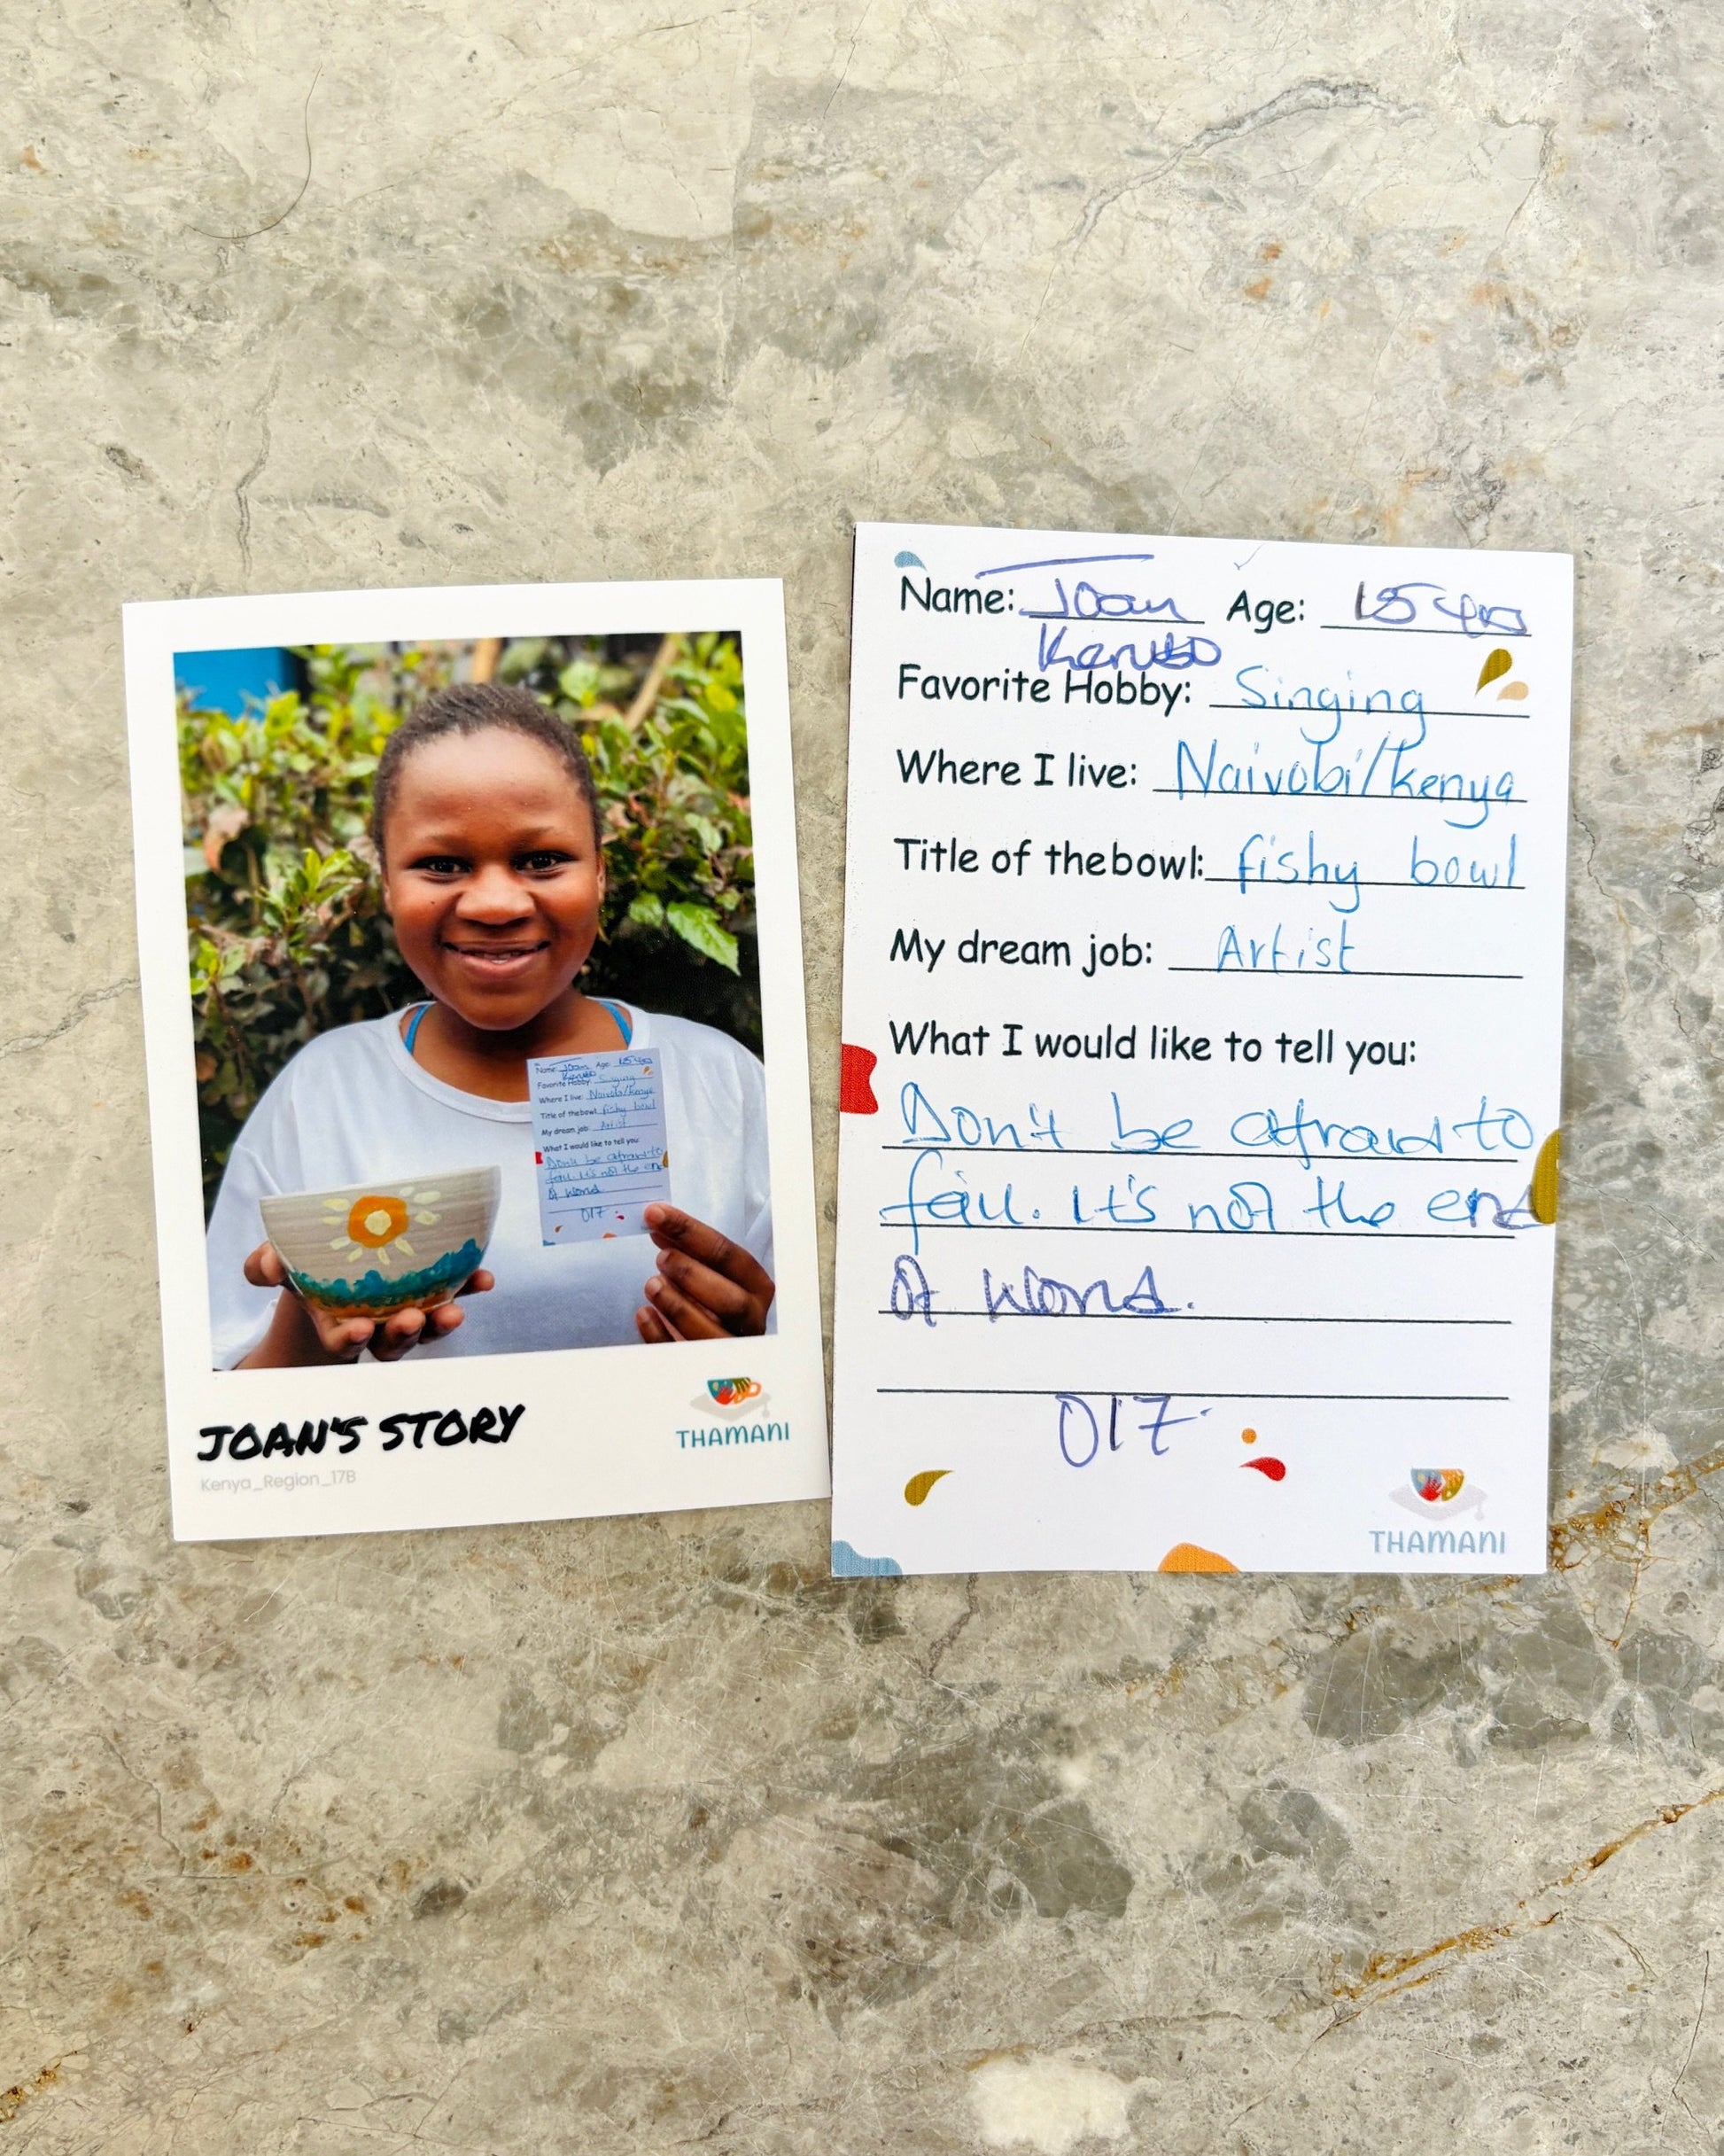 JOAN'S STORY
Kenya_Region_17B
THAMANI
Name: Joan Age: 15 yrs
Favorite Hobby: Singing
Where I live: Nairobi/Kenya
Title of the bowl: fishy bowl
My dream job: Artist
What I would like to tell you:
Don't be afraid to
fail. It's not the end
of world.
017
THAMANI